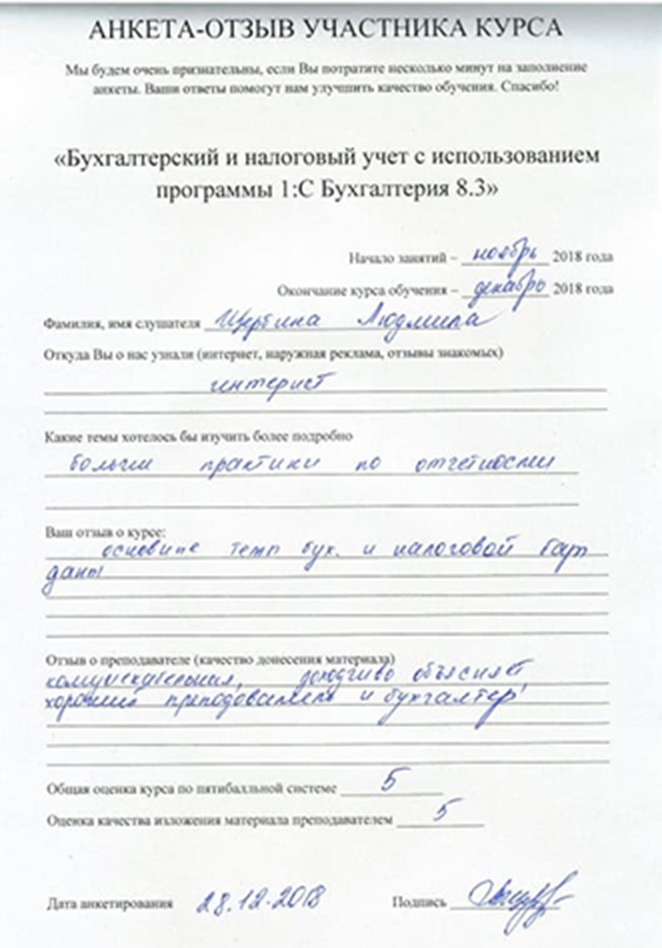 АНКЕТА-ОТЗЫВ УЧАСТНИКА КУРСА
Мы будем очень признательны, если Вы потратите несколько минут на заполнение
анкеты. Ваши ответы помогут нам улучшить качество обучения. Спасибо!
«Бухгалтерский и налоговый учет с использованием
программы 1:С Бухгалтерия 8.3»
Начало занятий – ноябрь 2018 года
Окончание курса обучения – декабрь 2018 года
Фамилия, имя слушателя Щербина Людмила
Откуда Вы о нас узнали (интернет, наружная реклама, отзывы знакомых)
интернет
Какие темы хотелось бы изучить более подробно
больше практики по отчетности
Ваш отзыв о курсе:
бух. и налоговой
даны
Отзыв о преподавателе (качество донесения материала)
доходчиво объясняет
хороший преподаватель и бухгалтер!
Общая оценка курса по пятибалльной системе 5
Оценка качества изложения материала преподавателем 5
Дата анкетирования 28.12.2018 Подпись